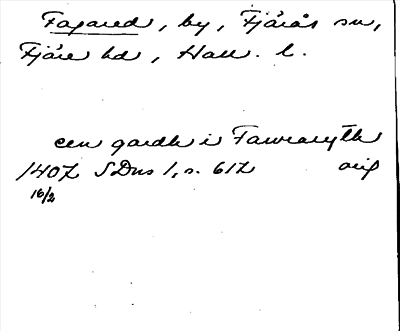 Fagared, by, Fjärås sn,
Fjäre hd, Hall. l.
een gardh i
1407 SDns 1, s. 617 orig
16/2